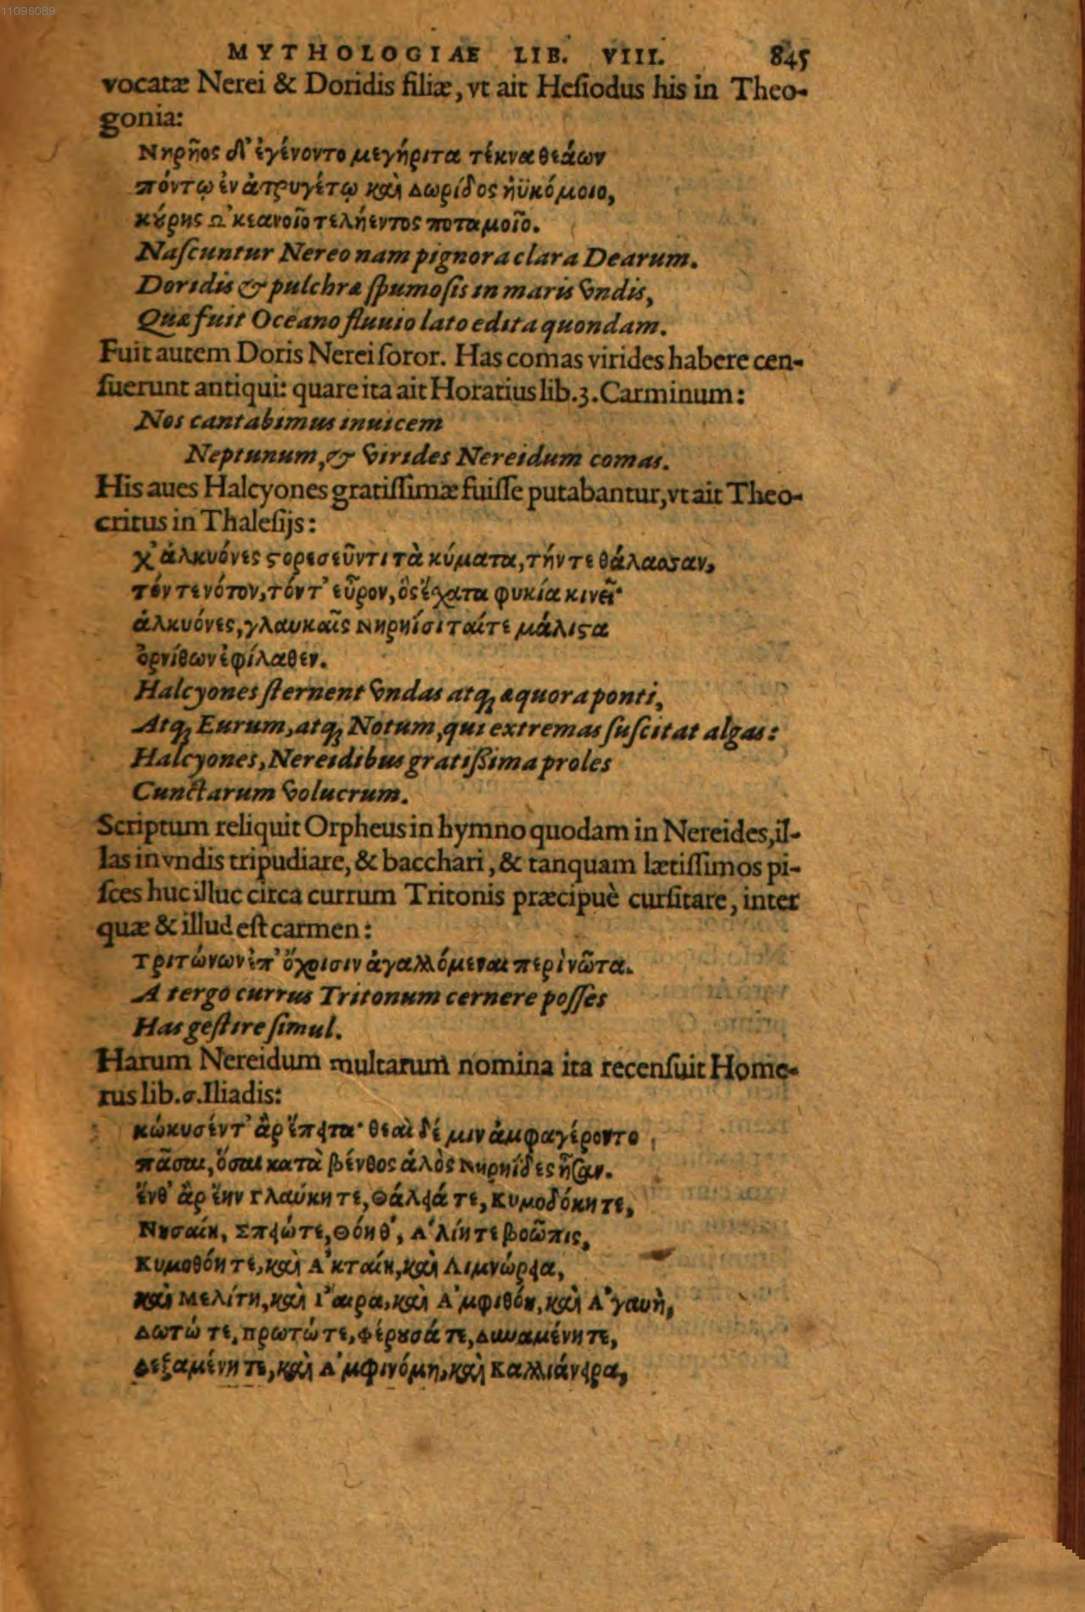 11098089
MYTHOLOGIAE LIB. VIII. 845
vocatæ Nerei & Doridis filiæ, vt ait Hesiodus his in Theo-
gonia:
Νηρῆος δ' ἐγένοντο μεγήριτα τέκνα θεάων
πόντῳ ἐν ἀτρυγέτῳ καὶ Δωρίδος ἠϋκόμοιο,
κούρης Ω'κεανοῖο τελήεντος ποταμοῖο.
Nascuntur Nereo nam pignora clara Dearum.
Doridis & pulchræ spumosis in maris vndis,
Quæ fuit Oceano fluuio lato edita quondam.
Fuit autem Doris Nerei soror. Has comas virides habere cen-
suerunt antiqui: quare ita ait Horatius lib.3. Carminum:
Nos cantabimus inuicem
Neptunum, & virides Nereidum comas.
His aues Halcyones gratissimæ fuisse putabantur, vt ait Theo-
critus in Thalesijs:
χ' ἀλκυόνες ϛορεσεῦντι τὰ κύματα, τήν τε θάλασσαν,
τόν τε νότον, τόν τ' εὖρον, ὃς ἔχατα φυκία κινεῖ·
ἀλκυόνες, γλαυκαῖς Νηρηΐσι ταίτε μάλιϛα
ὀρνίθων ἐφίλαθεν.
Halcyones sternent vndas atq; æquora ponti,
Atq; Eurum, atq; Notum, qui extremas suscitat algas:
Halcyones, Nereidibus gratißima proles
Cunctarum volucrum.
Scriptum reliquit Orpheus in hymno quodam in Nereides, il-
las in vndis tripudiare, & bacchari, & tanquam lætissimos pi-
sces huc illuc circa currum Tritonis præcipuè cursitare, inter
quæ & illud est carmen:
Τριτώνων ἐπ' ὄχοισιν ἀγαλλόμεναι περὶ νῶτα.
A tergo currus Tritonum cernere posses
Has gestire simul.
Harum Nereidum multarum nomina ita recensuit Home-
rus lib.σ. Iliadis:
κώκυσέν τ' ἂρ ἔπειτα· θεαὶ δέ μιν ἀμφαγέροντο
πᾶσαι, ὅσαι κατὰ βένθος ἁλὸς Νηρηΐδες ἦσαν.
ἔνθ' ἂρ ἔην Γλαύκη τε, Θάλειά τε, Κυμοδόκη τε,
Νησαίη, Σπειώ τε, Θόη θ', Α'λίη τε βοῶπις,
Κυμοθόη τε, καὶ Α'κταίη, καὶ Λιμνώρεια,
καὶ Μελίτη, καὶ Ι'αιρα, καὶ Α'μφιθόη, καὶ Α'γαυὴ,
Δωτώ τε, πρωτώ τε, φέρουσά τε, Δυναμένη τε,
Δεξαμένη τε, καὶ Α'μφινόμη, καὶ Καλλιάνειρα,